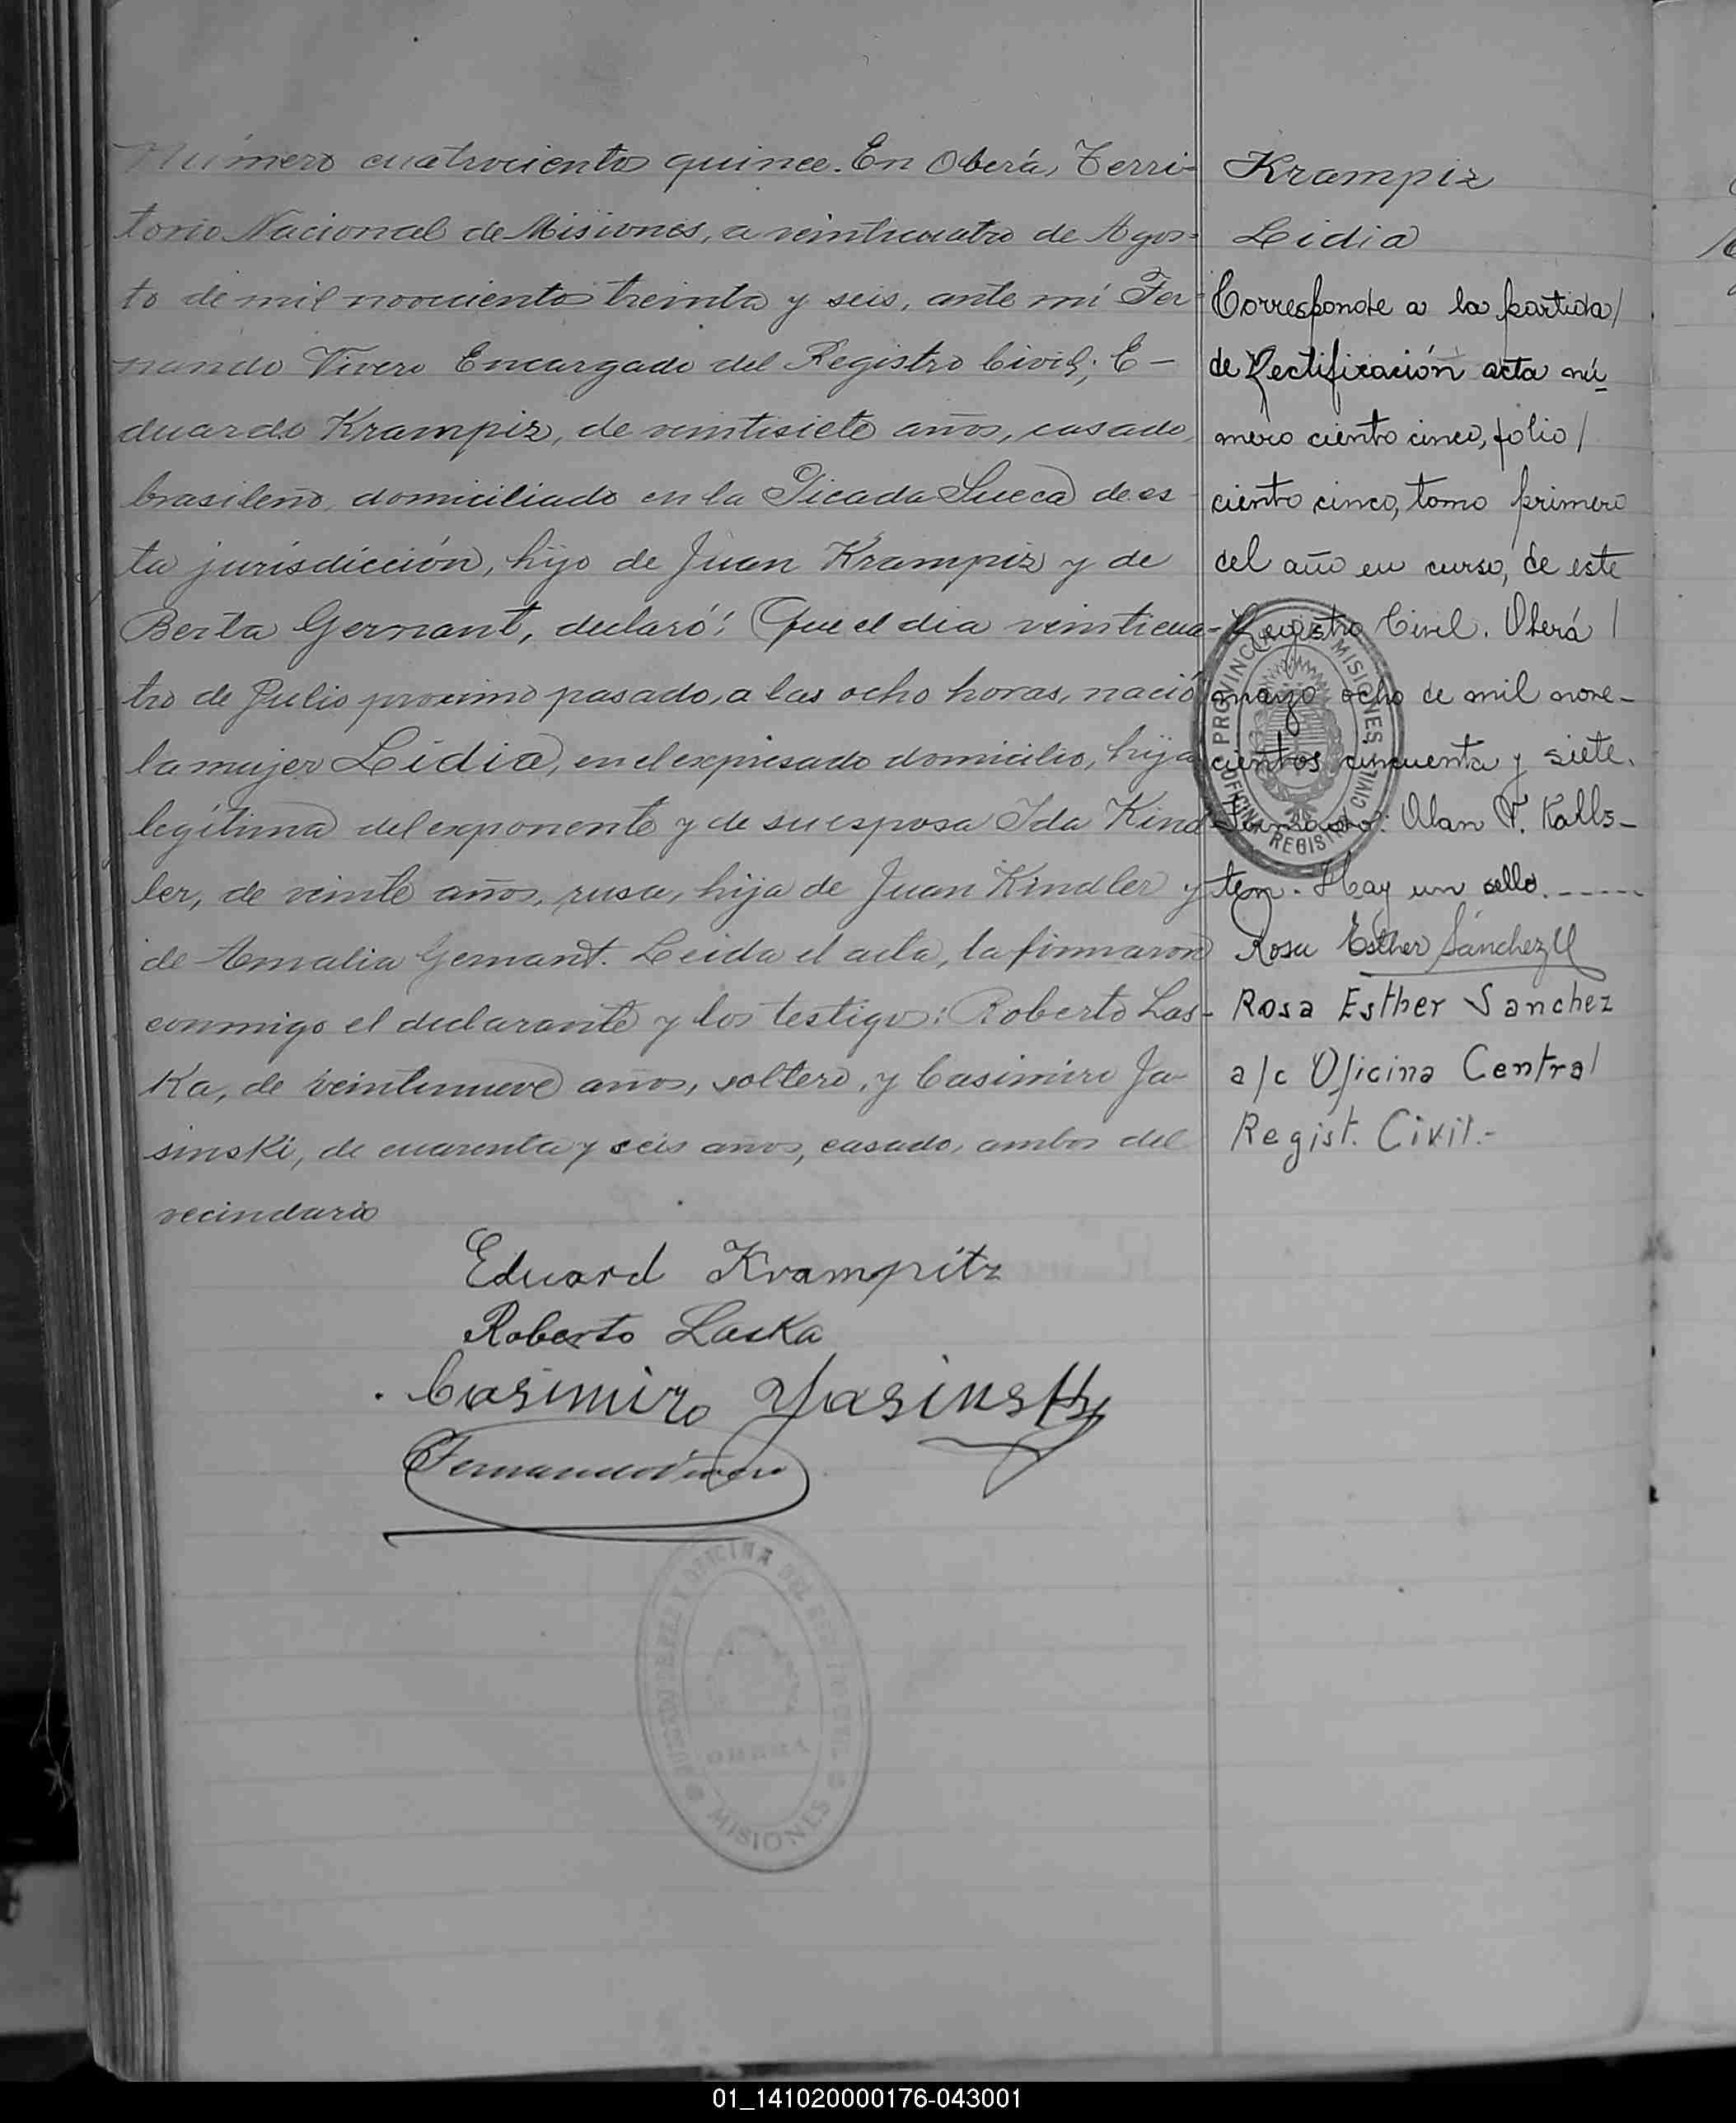 Número cuatrocientos quince. En Oberá, Terri-
torio Nacional de Misiones, a veinticuatro de Agos-
to de mil novecientos treinta y seis, ante mí Fer-
nando Vivero Encargado del Registro Civil; E-
duardo Krampiz, de veintisiete años, casado,
brasileño, domiciliado en la Picada Sueca de es-
ta jurisdicción, hijo de Juan Krampiz y de
Berta Gernant, declaró: Que el dia veinticua-
tro de Julio proximo pasado, a las ocho horas, nació
la mujer Lidia, en el expresado domicilio, hija
legítima del exponente y de su esposa Ida Kind-
ler, de veinte años, rusa, hija de Juan Kindler y
de Amalia Gernant. Leida el acta, la firmaron
conmigo el declarante y los testigos: Roberto Las-
ka, de veintinueve años, soltero, y Casimiro Ja-
sinski, de cuarenta y seis años, casado, ambos del
vecindario
Eduard Krampitz
Roberto Laska
Casimiro Yasinsky
Fernando Vivero
OFICINA DEL REGISTRO CIVIL
MISIONES
Krampiz
Lidia
Corresponde a la partida/
de Rectificación acta nú
mero ciento cinco, folio/
ciento cinco, tomo primero
del año en curso, de este
Registro Civil. Oberá/
marzo ocho de mil nove-
cientos cincuenta y siete.
Firmado: Alan T. Kalls-
ten. Hay un sello.-----
Rosa Esther Sánchez
Rosa Esther Sanchez
a/c Oficina Central
Regist. Civil.-
PROVINCIA DE MISIONES
OFICINA REGISTRO CIVIL
01_141020000176-043001